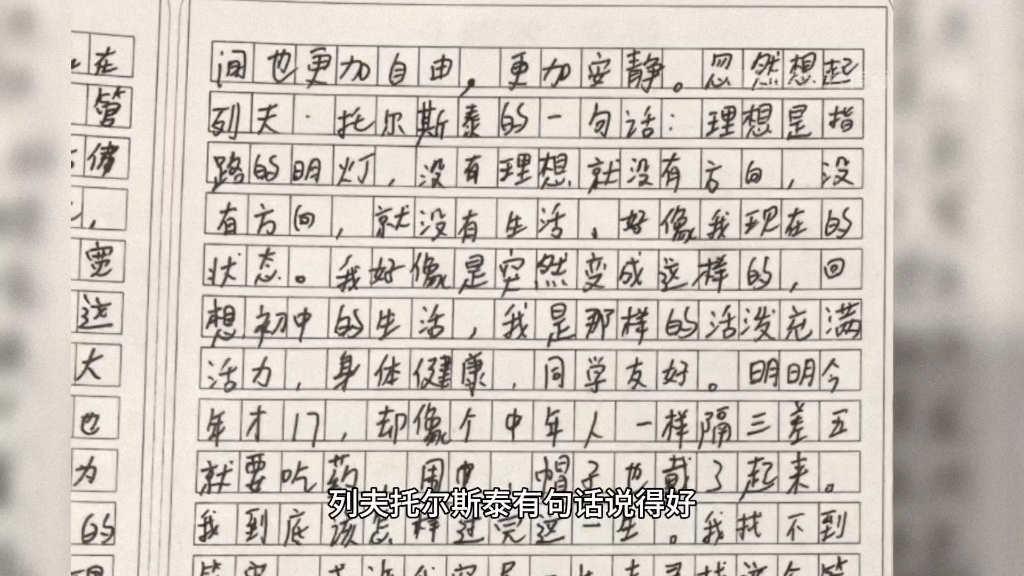 在
管
间也更加自由，更加安静。忽然想起
列夫·托尔斯泰的一句话：理想是指
路的明灯，没有理想就没有方向，没
有方向，就没有生活、好像我现在的
状态。我好像是突然变成这样的，回
想初中的生活，我是那样的活泼充满
活力，身体健康，同学友好。明明今
年才17，却像个中年人一样隔三差五
就要吃药，围巾，帽子也戴了起来。
我到底该怎样过完这一生。我找不到
宽
这
大
也
为
的
列夫托尔斯泰有句话说得好